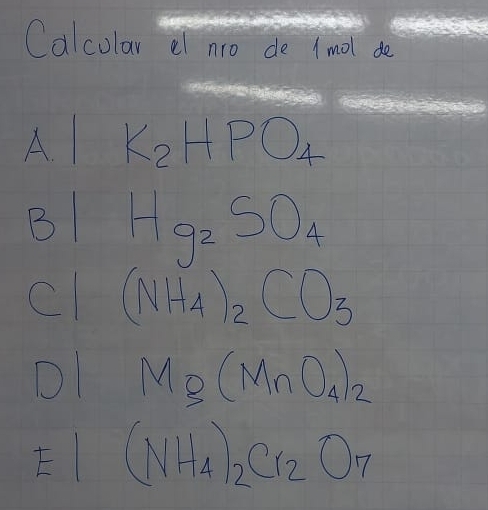 Calcular el nro de 1 mol de
A.| K₂HPO₄
B| Hg₂SO₄
C| (NH₄)₂CO₃
D| Mg(MnO₄)₂
E| (NH₄)₂Cr₂O₇